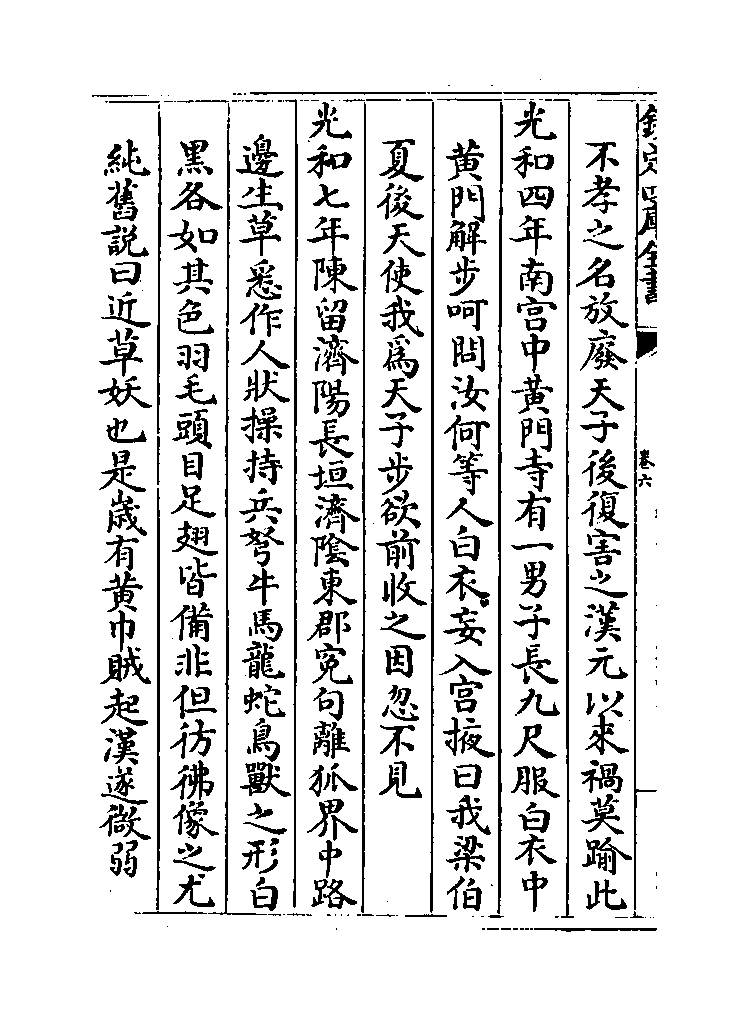 欽定四庫全書
卷六
不孝之名放廢天子後復害之漢元以來禍莫踰此
光和四年南宫中黄門寺有一男子長九尺服白衣中
黄門解步呵問汝何等人白衣妄入宫掖曰我梁伯
夏後天使我爲天子步欲前收之因忽不見
光和七年陳留濟陽長垣濟隂東郡寃句離狐界中路
邊生草悉作人狀操持兵弩牛馬龍蛇鳥獸之形白
黑各如其色羽毛頭目足翅皆備非但彷彿像之尤
純舊説曰近草妖也是嵗有黄巾賊起漢遂微弱